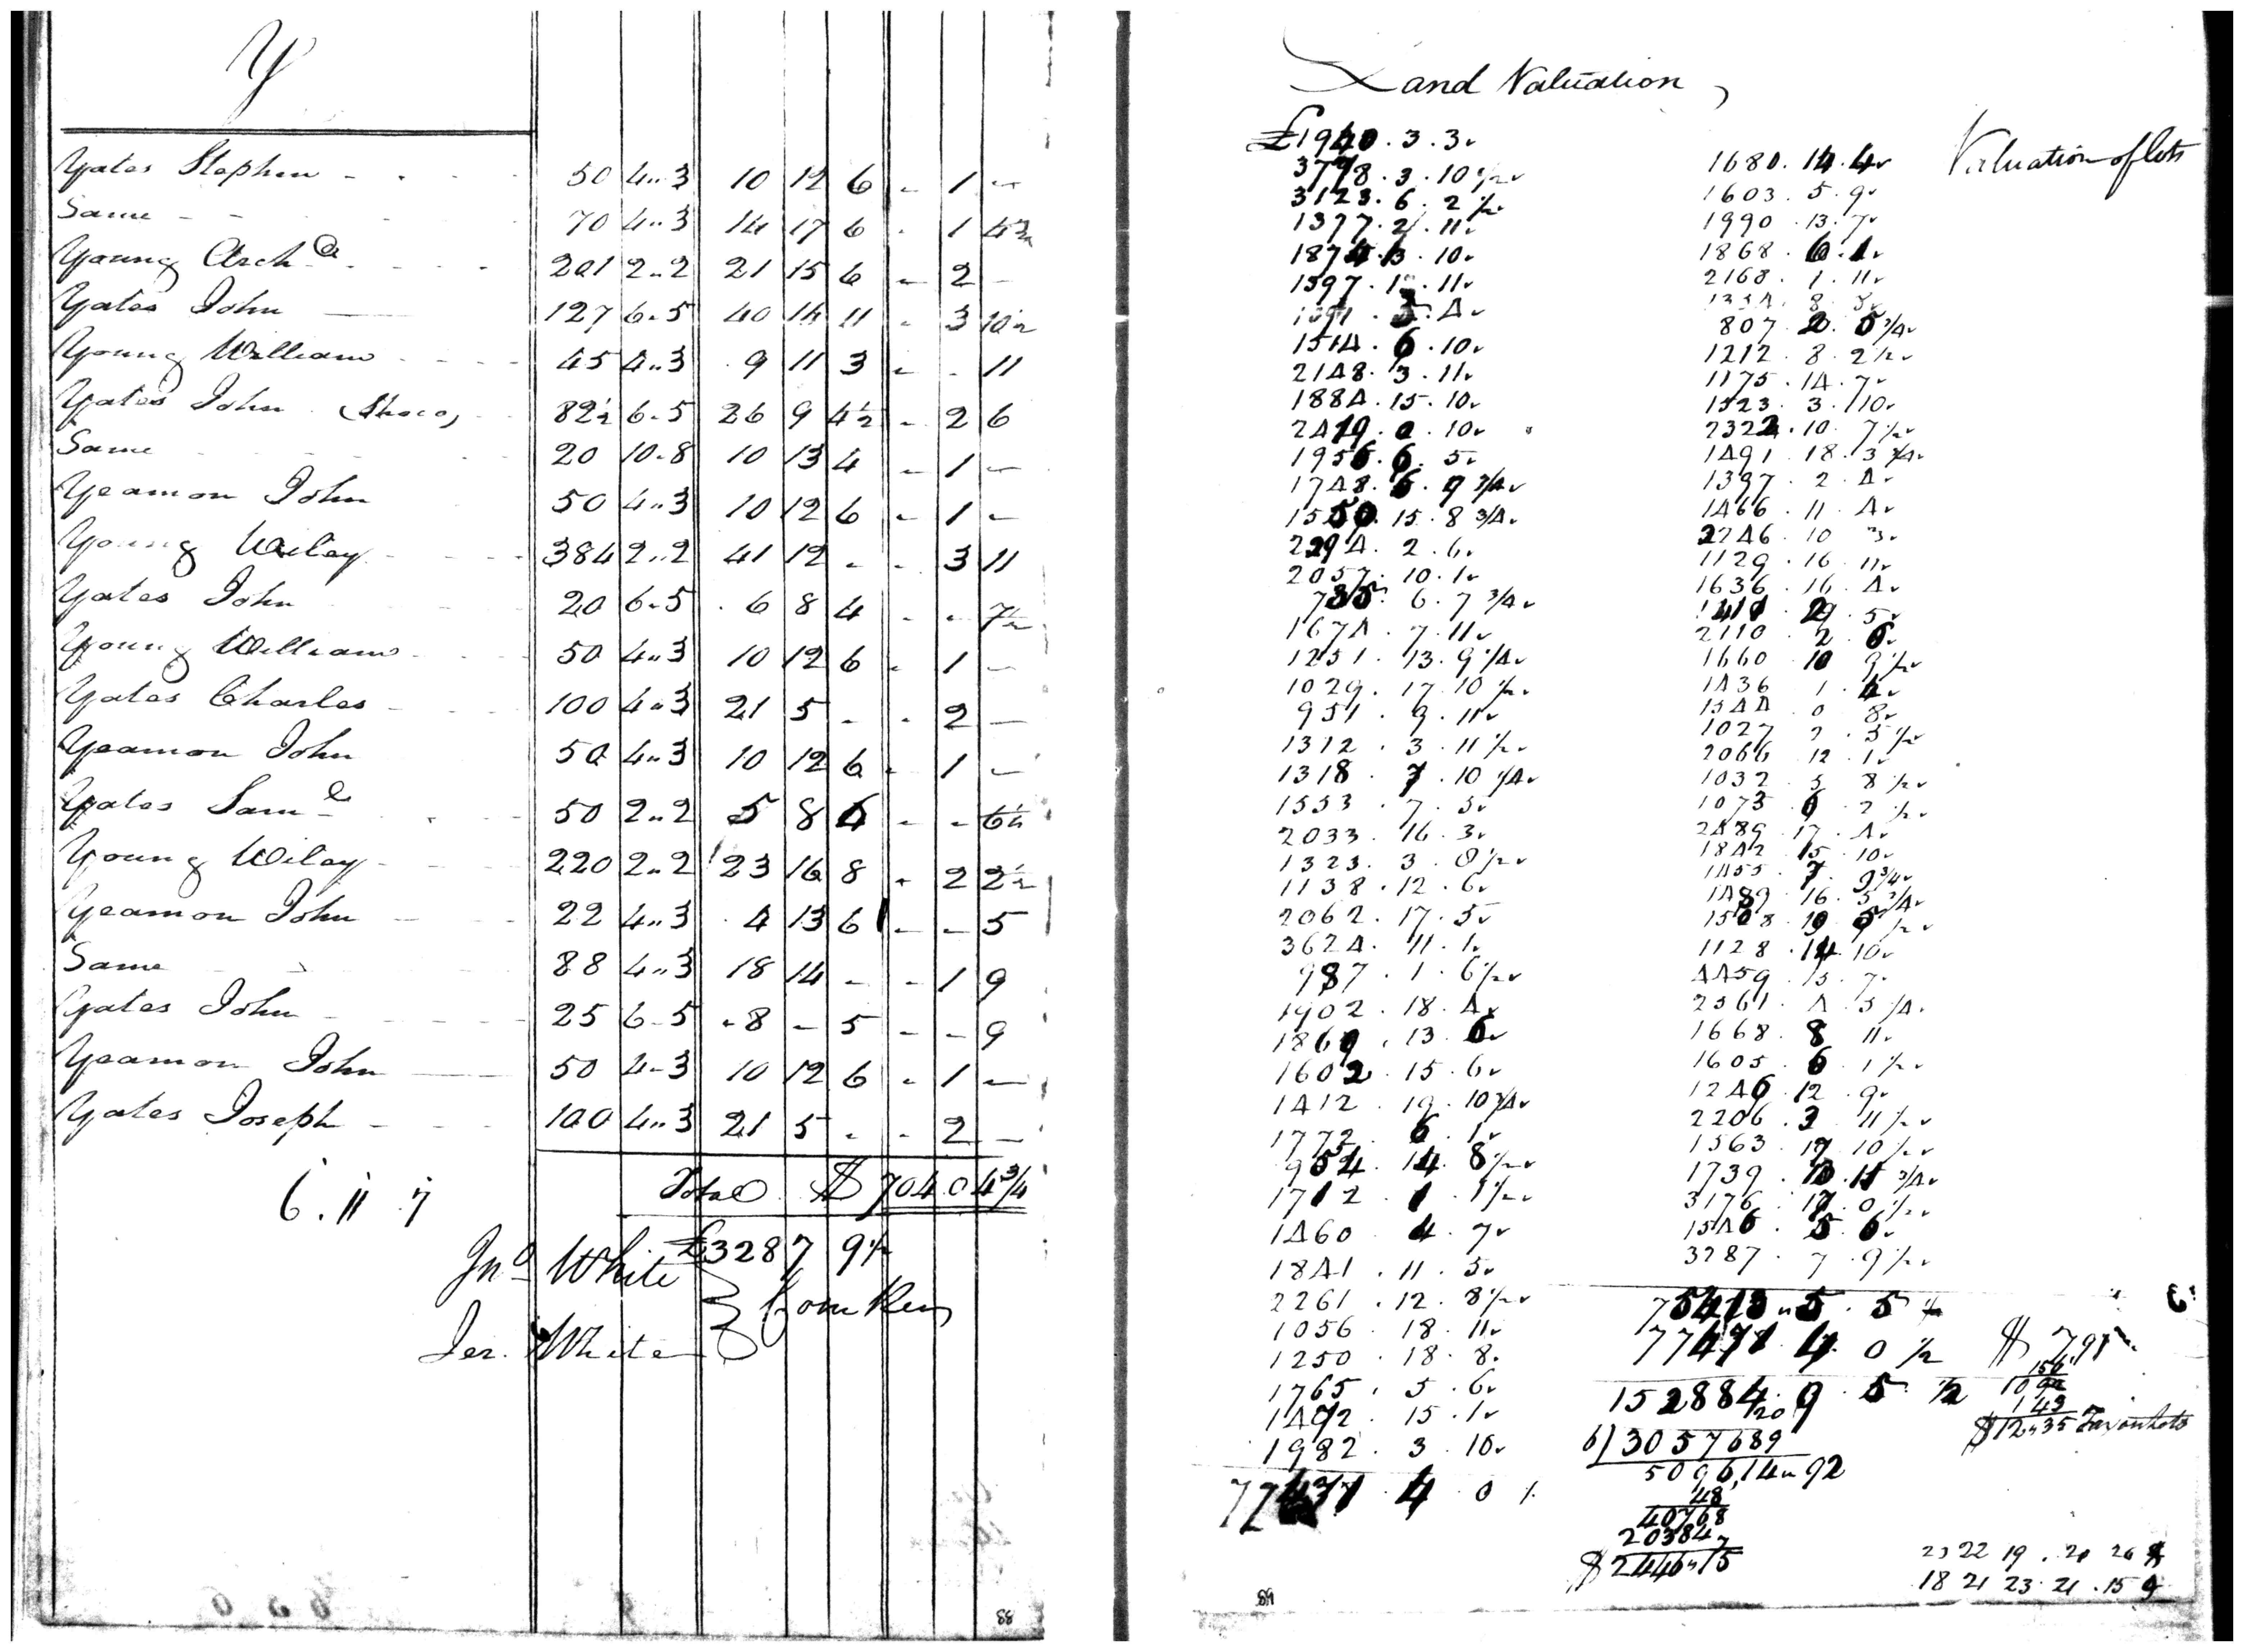 Y
Yates Stephen - - - 50 4..3 10 12 6 - 1 -
Same - - - 70 4..3 14 17 6 - 1 4¾
Young Archd. - - - 201 2..2 21 15 6 - 2 -
Yates John — 127 6-5 40 14 11 - 3 10½
Young William - - - 45 4..3 9 11 3 - - 11
Yates John (Shoco) - 82½ 6-5 26 9 4½ - 2 6
Same - - - 20 10-8 10 13 4 - 1 -
Yeamon John 50 4..3 10 12 6 - 1 -
Young Wiley - - - 384 2..2 41 12 - - 3 11
Yates John - - - 20 6-5 6 8 4 - - 7½
Young William - - - 50 4..3 10 12 6 - 1 -
Yates Charles - - - 100 4..3 21 5 - - 2 -
Yeamon John 50 4..3 10 12 6 - 1 -
Yates Saml - - - 50 2..2 5 8 4 - - 6½
Young Wiley - - - 220 2..2 23 16 8 - 2 2½
Yeamon John - - - 22 4..3 4 13 6 - - 5
Same - - - 88 4..3 18 14 - - 1 9
Yates John - - - 25 6-5 8 - 5 - - 9
Yeamon John — 50 4-3 10 12 6 - 1 -
Yates Joseph - - - 100 4..3 21 5 - - 2 -
Total $ 704 0 4¾
6 . 11 . 7
£3287 7 9½
Jno White
Jer. White } Com Rev
88
Land Valuation
£1940 . 3 . 3
3778 . 3 . 10½
3123 . 6 . 2½
1377 . 2 . 11
1874 . 13 . 10
1597 . 1 . 11
1514 . 6 . 10
2148 . 3 . 11
1884 . 15 . 10
2419 . 0 . 10
1956 . 6 . 5
1748 . 6 . 9¾
1550 . 15 . 8¾
2294 . 2 . 6
2057 . 10 . 1
735 . 6 . 7¾
1674 . 7 . 11
1251 . 13 . 9¼
1029 . 17 . 10½
951 . 9 . 11
1312 . 3 . 11½
1318 . 7 . 10¼
1553 . 7 . 5
2033 . 16 . 3
1323 . 3 . 0½
1138 . 12 . 6
2062 . 17 . 5
3624 . 11 . 1
987 . 1 . 6½
1902 . 18 . 4
1869 . 13 . 6
1602 . 15 . 6
1412 . 19 . 10¾
1772 . 6 . 1
954 . 14 . 8½
1712 . 1 . 1½
1460 4 . 7
1841 . 11 . 5
2261 . 12 . 8½
1056 . 18 . 11
1250 . 18 . 8
1765 . 5 . 6
1472 . 15 . 1
1982 . 3 . 10
77471 . 4 . 0 ½
89
1680 . 14 . 4
1603 . 5 . 9
1990 . 13 . 7
1868 . 6 . 1
2168 . 1 . 11
1334 . 8 . 8
807 . 2 . 5¾
1212 . 8 . 2½
1175 . 14 . 7
1523 . 3 . 10
2322 . 10 . 7½
1491 . 18 . 3¾
1397 . 2 . 4
1466 . 11 . 4
2246 . 10 3
1129 . 16 . 11
1636 . 16 . 4
2110 . 2 . 6
1660 10 9½
1436 1 . 4
1544 0 8
1027 2 . 5½
2066 12 . 1
1032 . 5 8½
1073 6 2½
2489 17 . 4
1842 15 . 10
1455 7 . 9¾
1489 . 16 . 5¾
1508 . 19 5½
1128 . 14 . 10
4459 . 15 . 7
2561 . 4 . 5¼
1668 . 8 11
1605 . 6 . 1½
1246 . 12 . 9
2206 . 3 . 11½
1563 . 17 10½
1739 . 13 . 11¾
3176 . 17 . 0½
1546 . 5 . 6
3287 . 7 . 9½
75413 .. 5 . 5
77471 4 . 0 ½
152884 . 9 . 5 ½
20
6)3057689
509614..92
48
40768
20384
$2446..75
Valuation of lots
$ 791
156
143
$12..35 Tax on Lots
22 19
18 21 23 . 21 . 15 9